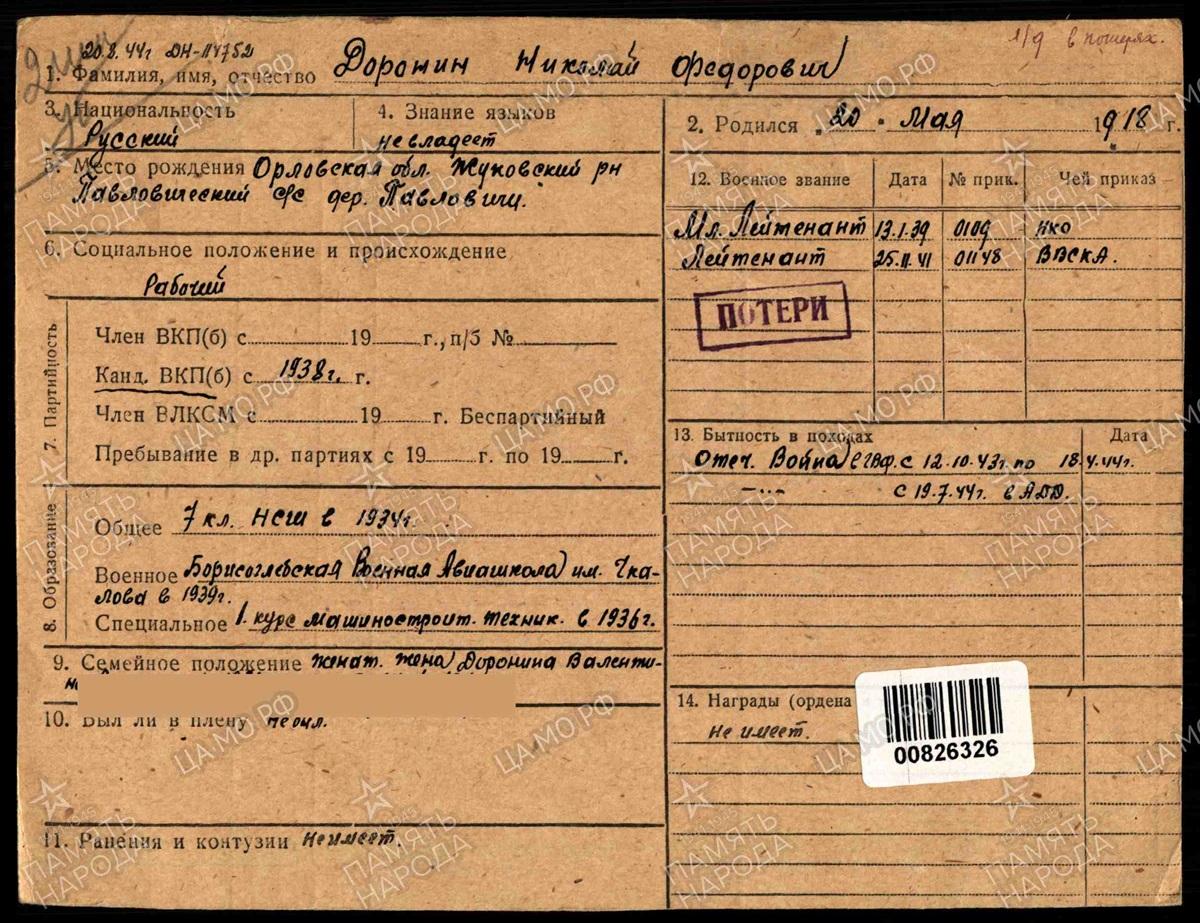 20.8.44г ДН-114752
л/д в потерях.
1. Фамилия, имя, отчество Доронин Николай Федорович
3. Национальность Русский
4. Знание языков не владеет
2. Родился „20“ Мая 1918 г.
5. Место рождения Орловская обл. Жуковский рн
Павловический с/с дер. Павловичи.
6. Социальное положение и происхождение
Рабочий
7. Партийность
Член ВКП(б) с 19 г., п/б №
Канд. ВКП(б) с 1938г. г.
Член ВЛКСМ с 19 г. Беспартийный
Пребывание в др. партиях с 19 г. по 19 г.
8. Образование
Общее 7 кл. НСШ в 1934г.
Военное Борисоглебская Военная Авиашкола им. Чка-
лова в 1939г.
Специальное 1. курс машиностроит. техник. в 1936г.
9. Семейное положение женат. жена Доронина Валенти-
на
10. Был ли в плену не был.
11. Ранения и контузии Не имеет.
12. Военное звание Дата № прик. Чей приказ
Мл. Лейтенант 13.1.39 0109 НКО
Лейтенант 25.11.41 01148 ВВСКА.
ПОТЕРИ
13. Бытность в походах Дата
Отеч. Война в ГВФ. с 12.10.43г по 18.4.44г.
—„— с 19.7.44г. в АДД.
14. Награды (ордена
не имеет.
00826326
ПАМЯТЬ НАРОДА
ЦАМО.РФ